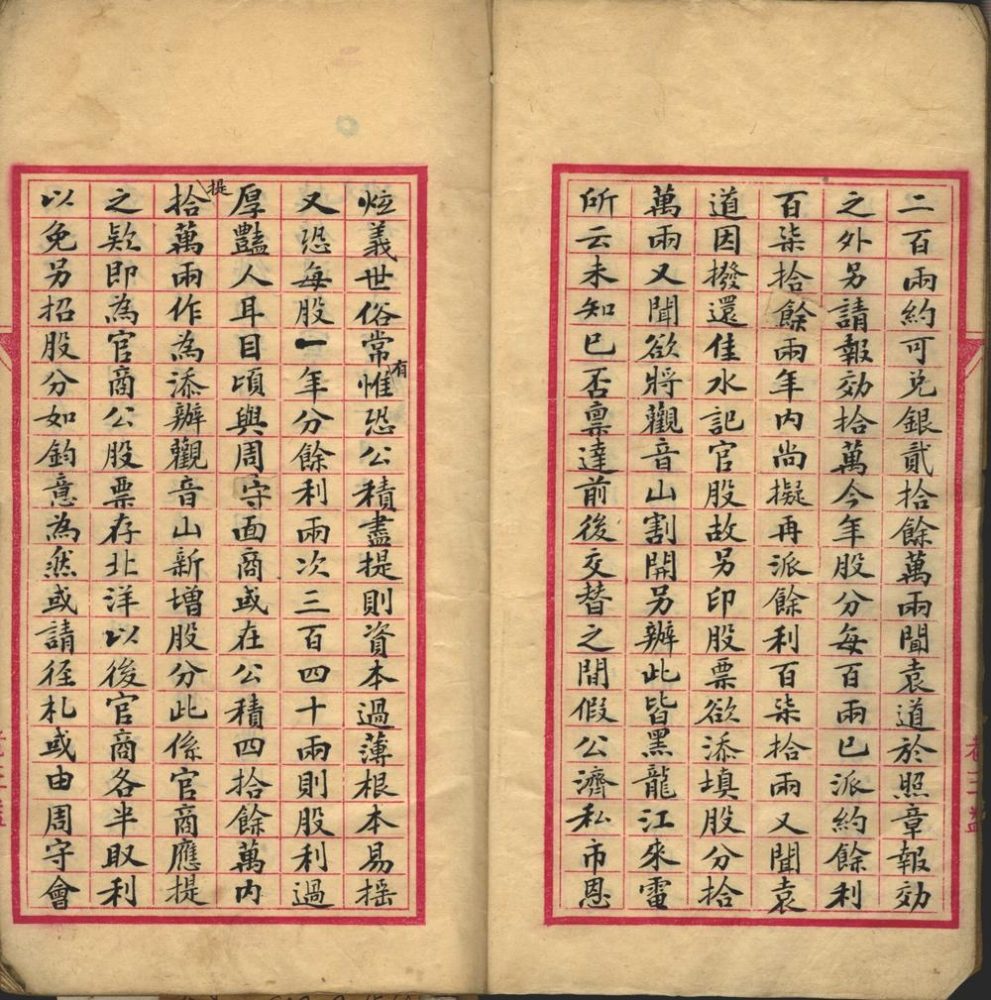 二百兩約可兑銀貳拾餘萬兩聞袁道於照章報効
之外另請報効拾萬今年股分每百兩已派約餘利
百柒拾餘兩年内尚擬再派餘利百柒拾兩又聞袁
道因撥還佳水記官股故另印股票欲添填股分拾
萬兩又聞欲將觀音山割開另辦此皆黑龍江來電
所云未知已否禀達前後交替之間假公濟私市恩
炫義世俗常有惟恐公積盡提則資本過薄根本易摇
又恐每股一年分餘利兩次三百四十兩則股利過
厚豔人耳目頃與周守面商或在公積四拾餘萬内
提拾萬兩作為添辦觀音山新增股分此係官商應提
之欵即為官商公股票存北洋以後官商各半取利
以免另招股分如鈞意為然或請径札或由周守會